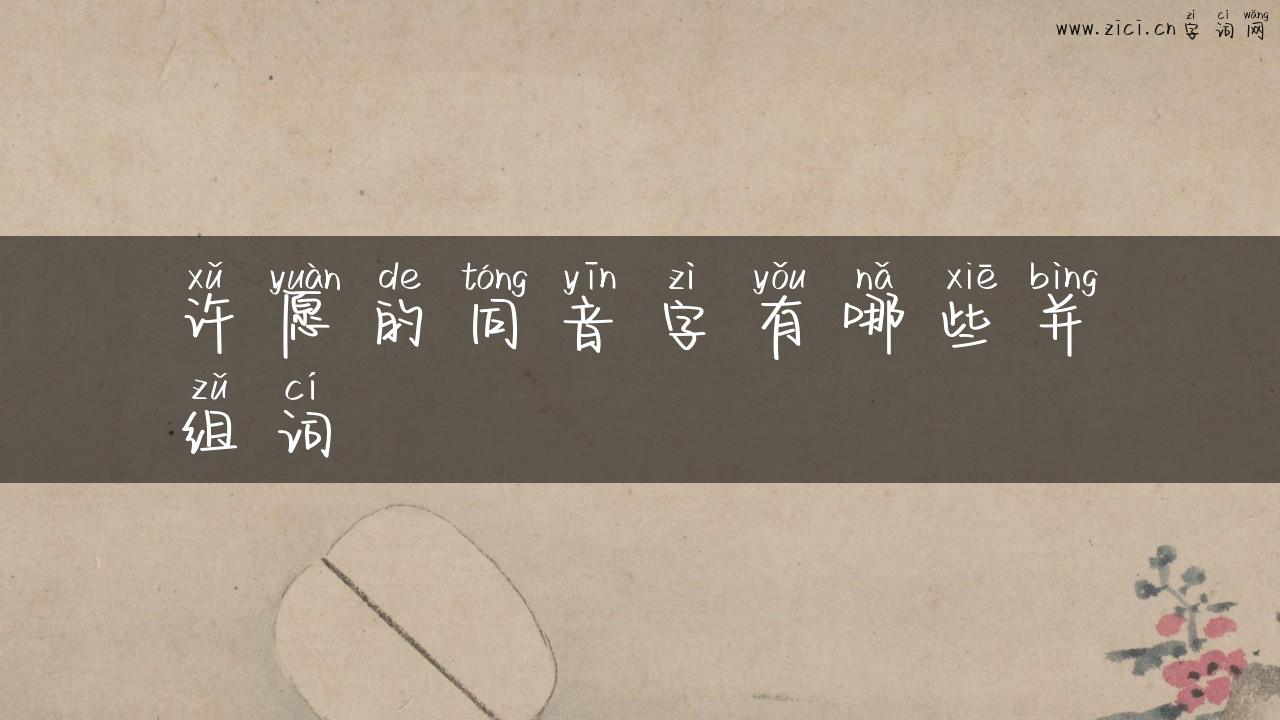 zì cí wǎng
www.zici.cn 字词网
xǔ yuàn de tóng yīn zì yǒu nǎ xiē bìng
许愿的同音字有哪些并
zǔ cí
组词